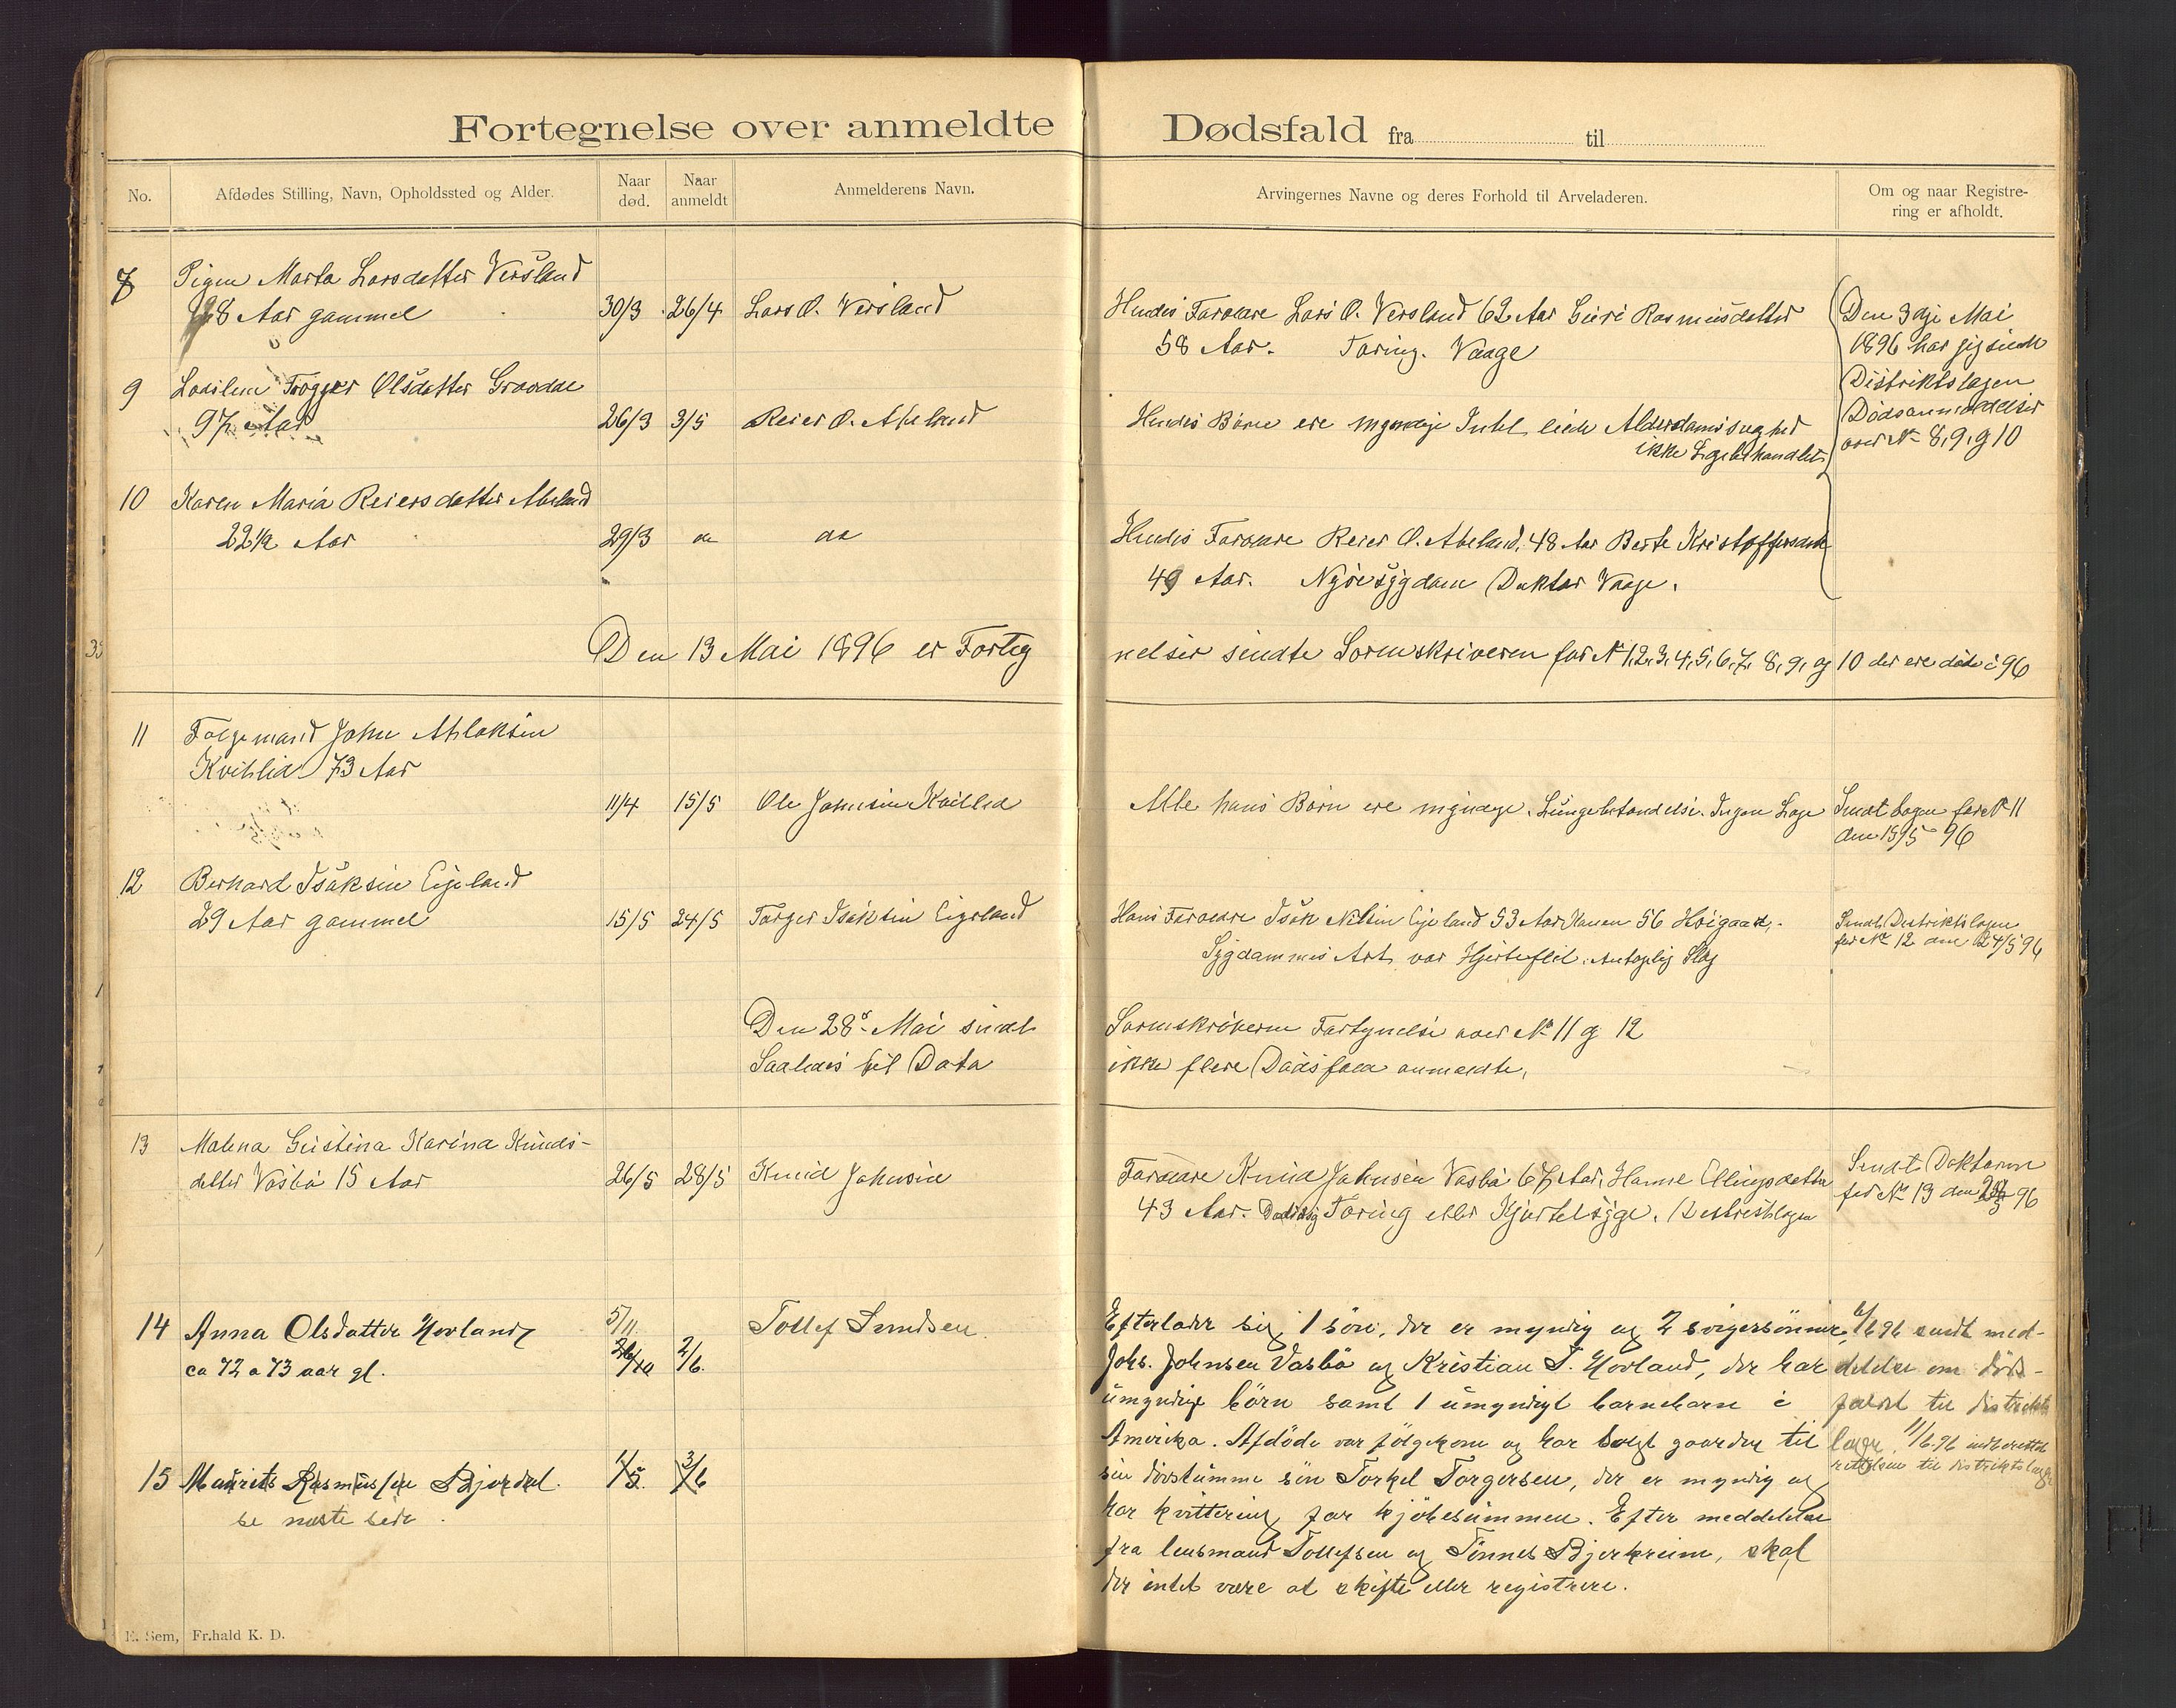 Fortegnelse over anmeldte Dødsfald fra til
No. Afdødes Stilling, Navn, Opholdssted og Alder. Naar død. Naar anmeldt Anmelderens Navn. Arvingernes Navne og deres Forhold til Arveladeren. Om og naar Registrering er afholdt.
8 Pigen Marta Larsdatter Versland
28 Aar gammel 30/3 26/4 Lars O. Versland
Hendes Foraldre Lars O. Versland 62 Aar Siri Rasmusdatter
58 Aar. Taring. Vaage
Den 3die Mai
1896 har jeg sendt
Distriktslagen
Dødsanmeldelser
over No 8, 9, og 10
9 Olsdatter Gravdal
97 Aar 26/3 3/5 Reier O. Abeland
Hendes Børn ere myndige Intet Alderdomssvaghed
ikke Lægebehandlet
10 Karen Maria Reiersdatter Abeland
22 1/2 Aar 29/3 do do
Hendes Foraldre Reier O. Abeland, 48 Aar Berte Kristoffersdatter
49 Aar. Nyresygdom Doktor Vaage.
Den 13 Mai 1896 er Forteg
nelser sendte Sorenskriveren for No 1, 2, 3, 4, 5, 6, 7, 8, 9, og 10 der ere døde i 96
11 Følgemand John Aslaksen
Kvitlid 73 Aar
11/4 15/5 Ole Johnsen Kvitlid
Alle hans Børn ere myndige. Lungebetændelse. Ingen Læge
Sendt Lagen for No 11
den 15/5 96
12 Berhard Isaksen Eigeland
29 Aar gammel 15/5 24/5 Torger Isaksen Eigeland
Hans Foraldre Isak Nilsen Eigeland 53 Aar Konen 56
Sygdommes Art var Hjertefeil. Antagelig Slag
Sendt Distriktslagen
for No 12 den 24/5 96
Den 28de Mai sendt
Saaledes til Dato
Sorenskriveren Fortegnelse over No 11 og 12
ikke flere Dødsfald anmeldte.
13 Malena Gustina Karina Knuds-
datter Vasbø 15 Aar 26/5 28/5 Knud Johnsen
Foraldre Knud Johnsen Vasbø 67 Aar, Hanne Ellingsdatter
43 Aar. Taring eller Kjertelsyge. Distriktslagen
Sendt Doktoren
for No 13 den 96
14 Anna Olsdatter Hovland
ca 72 a 73 aar gl. 5/11 2/6. Tollef Svendsen.
Efterlader sig 1 søn, der er myndig og 2 svigersønner,
Johs. Johnsen Vasbø og Kristian T. Hovland, der har
umyndige børn samt 1 umyndigt barnebarn i
Amerika. Afdøde var følgekone og har solgt gaarden til
sin døvstumme søn Torkel Torgersen, der er myndig og
har kvittering for kjøbesummen. Efter meddelelse
fra lensmand Tollefsen og Tønnes Bjerkreim, skal
der intet være at skifte eller registrere.
6/6 96 sendt med-
delelse om døds-
faldet til distrikts
lage. 11/6 96 indberettet
rettelsen til distriktslage
15 Maurits Rasmussen Bjordal. 1/5. 3/6
se næste side.
E. Sem, Fr.hald K. D.